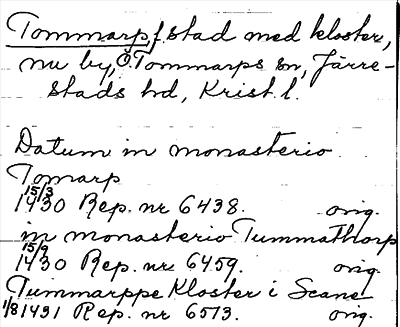 Tommarp, f. stad med kloster,
nu by, Ö. Tommarps sn, Järre-
stads hd, Krist. l.
Datum in monasterio
Tomarp
15/3
1430 Rep. nr 6438. orig.
in monasterio Tummathorp
15/9
1430 Rep. nr 6459. orig.
Tummarppe Kloster i Scane
1/8 1431 Rep. nr 6573. orig.